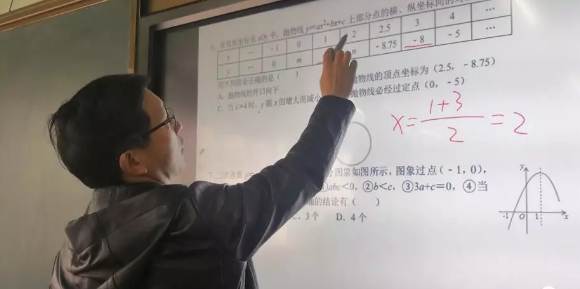 在平面直角坐标系xOy中，抛物线y=ax²+bx+c上部分点的横、纵坐标间的对
x … -1 0 1 2 2.5 3 4 …
y … 0 m n -8.75 -8 -5 …
下列结论正确的是（ ）
A. 抛物线的开口向下 抛物线的顶点坐标为（2.5，-8.75）
C. 当x>4时，y随x的增大而减小 抛物线必经过定点（0，-5）
x=(1+3)/2=2
7. 二次函数 图象如图所示，图象过点（-1，0），
①abc<0，②b<c，③3a+c=0，④当
的结论有（ ）
C. 3个 D. 4个
y
-1 O 1 x